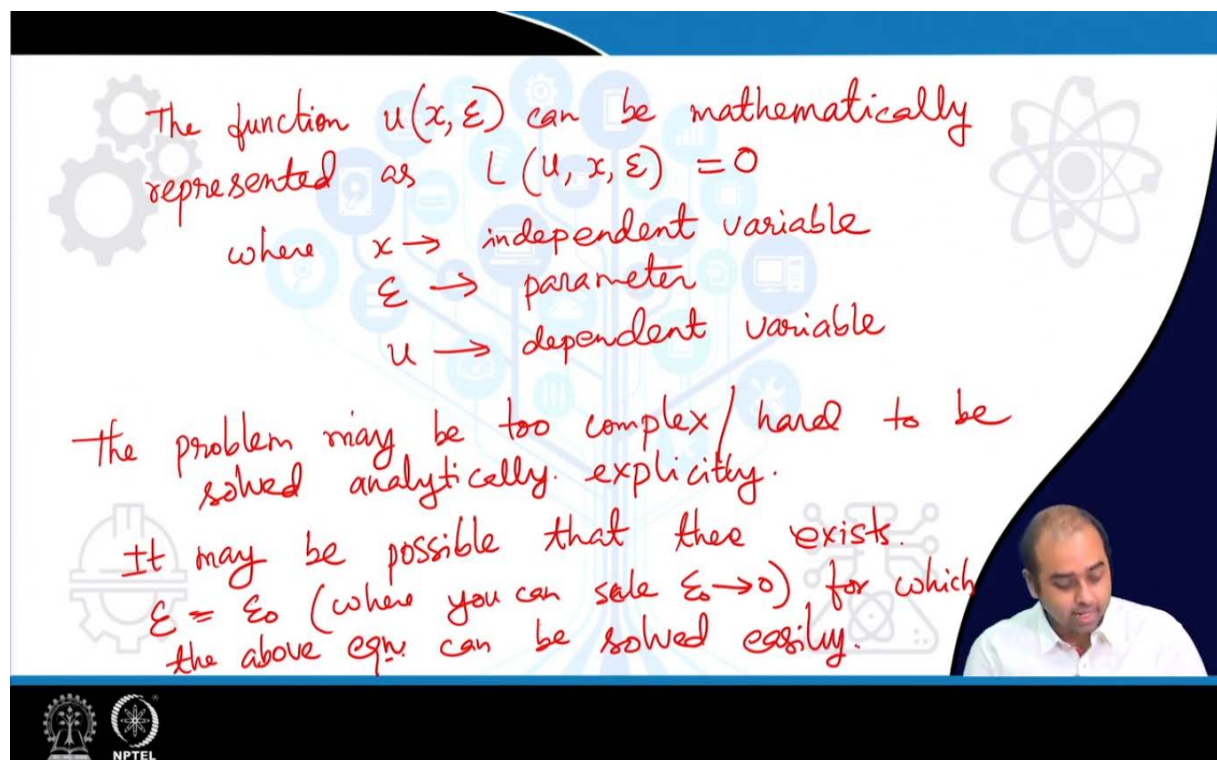 The function u(x, ε) can be mathematically
represented as L (u, x, ε) = 0
where x → independent variable
ε → parameter
u → dependent variable
The problem may be too complex / hard to be
solved analytically. explicitly.
It may be possible that thee exists.
ε = ε₀ (where you can sale ε₀ → 0) for which
the above eqn. can be solved easily.
NPTEL